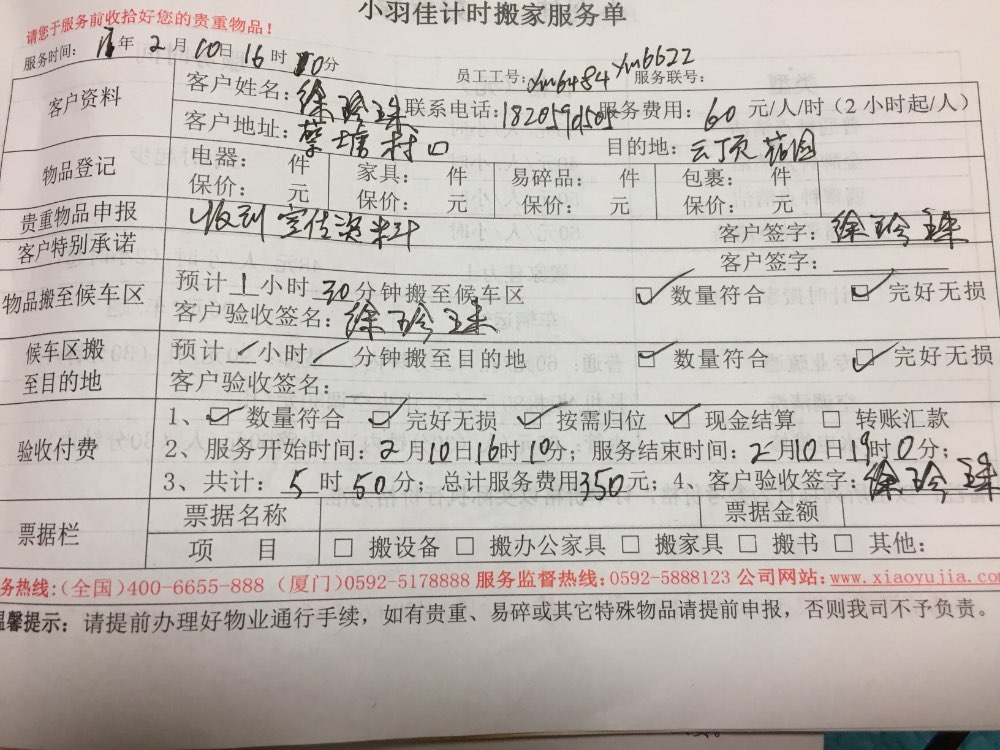 小羽佳计时搬家服务单
请您于服务前收拾好您的贵重物品！
服务时间： 年 2 月 10 日 16 时 10 分 员工工号：xm6484 xm6622 服务联号：
客户资料 客户姓名：徐玲珠 联系电话： 服务费用：60 元/人/时（2 小时起/人）
客户地址：蔡塘村口 目的地：云顶 园
物品登记 电器： 件 家具： 件 易碎品： 件 包裹： 件
保价： 元 保价： 元 保价： 元 保价： 元
贵重物品申报 收到宣传资料 客户签字：徐玲珠
客户特别承诺 客户签字：
物品搬至候车区 预计 1 小时 30 分钟搬至候车区 ☑ 数量符合 ☑ 完好无损
客户验收签名：徐玲珠
候车区搬至目的地 预计 / 小时 / 分钟搬至目的地 ☑ 数量符合 ☑ 完好无损
客户验收签名：
验收付费 1、☑ 数量符合 ☑ 完好无损 ☑ 按需归位 ☑ 现金结算 □ 转账汇款
2、服务开始时间：2月10日16时10分；服务结束时间：2月10日19时0分；
3、共计：5时50分；总计服务费用350元；4、客户验收签字：徐玲珠
票据栏 票据名称 票据金额
项 目 □ 搬设备 □ 搬办公家具 □ 搬家具 □ 搬书 □ 其他：
务热线：（全国）400-6655-888 （厦门）0592-5178888 服务监督热线：0592-5888123 公司网站：www.xiaoyujia.com
温馨提示：请提前办理好物业通行手续，如有贵重、易碎或其它特殊物品请提前申报，否则我司不予负责。